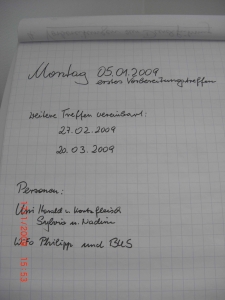 Montag 05.01.2009
erstes Vorbereitungstreffen
weitere Treffen vereinbart:
27.02.2009
20.03.2009
Personen:
Uni Harald u.
Sylvia u. Nadine
WiFo Philipp und BUS
15:53